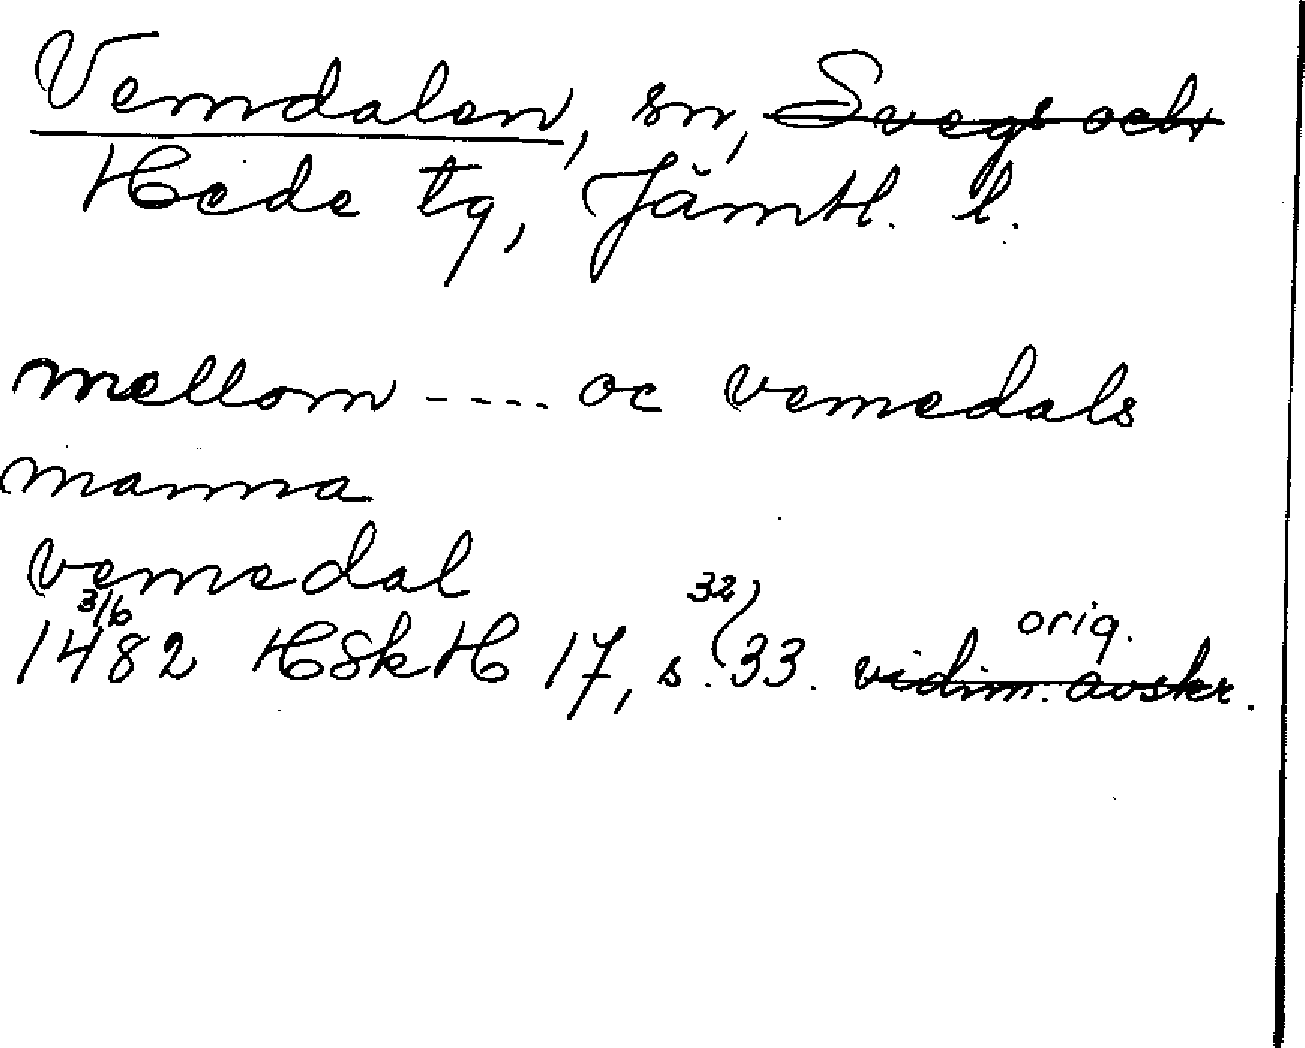 Vemdalen, sn, Svegs och
Hede tg, Jämtl. l.
mellom ---- oc vemedals
manna
vemedal
3/6 32) orig.
1482 HSkH 17, s. 33. vidim. avskr.